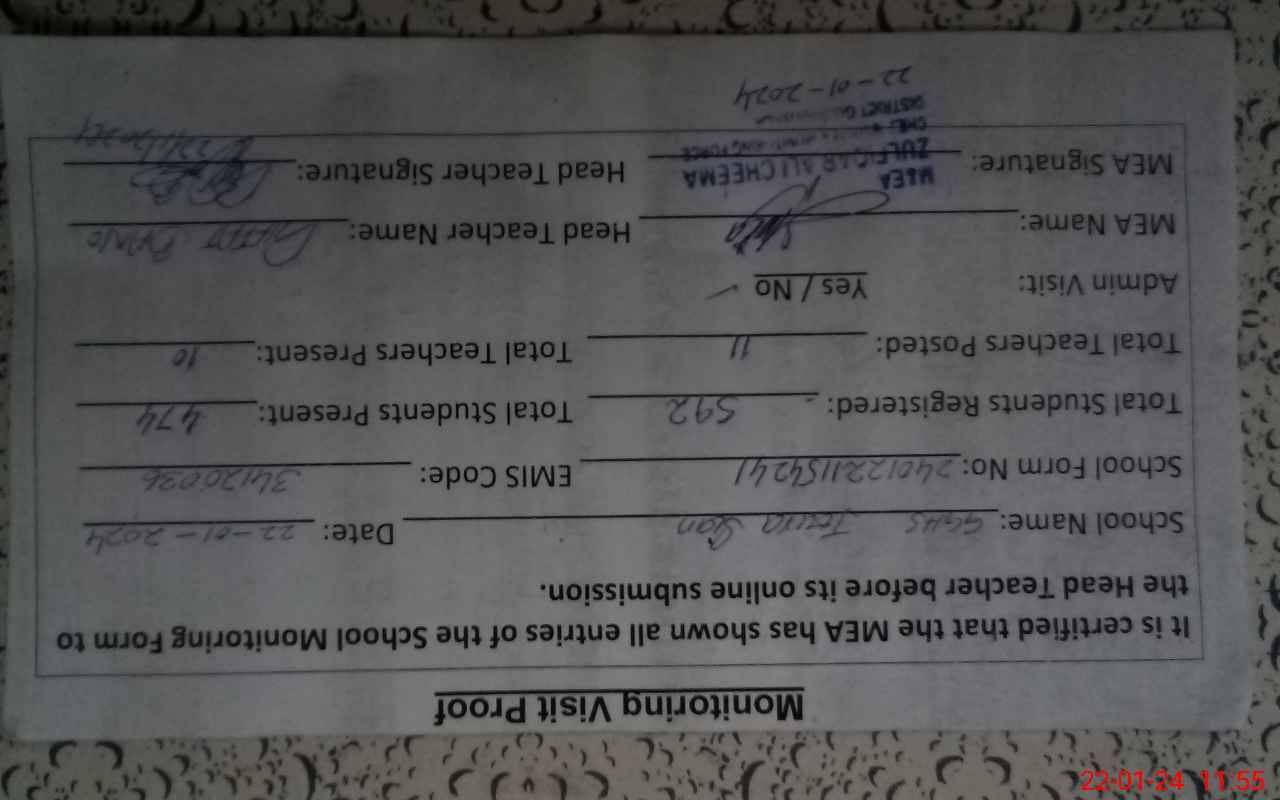 Monitoring Visit Proof
It is certified that the MEA has shown all entries of the School Monitoring Form to
the Head Teacher before its online submission.
School Name: GGHS Date: 22-01-2024
School Form No: 240122115424 1 EMIS Code: 34120036
Total Students Registered: 592 Total Students Present: 474
Total Teachers Posted: 11 Total Teachers Present: 10
Admin Visit: Yes / No ✓
MEA Name: Head Teacher Name:
MEA Signature: Head Teacher Signature:
M&EA
ZULFIQAR ALI CHEEMA
DISTRICT
22-01-2024
22-01-24 11:55